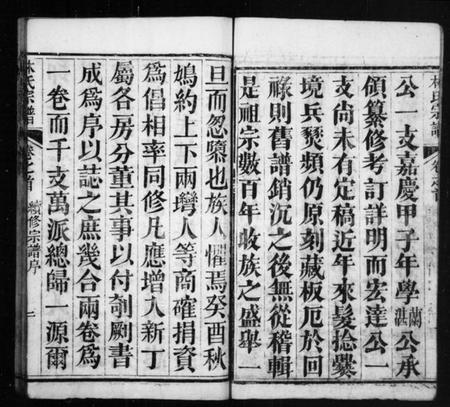 林氏宗譜
卷之首
公一支嘉慶甲子年學蘭湛公承
領纂修考訂詳明而宏達公一
支尚未有定稿近年來髮捻釁
境兵燹頻仍原刻藏板厄於回
祿則舊譜銷沉之後無從稽輯
是祖宗數百年收族之盛舉一
旦而忽隳也族人懼焉癸酉秋
鳩約上下兩灣人等商確捐資
為倡相率同修凡應增入新丁
屬各房分董其事以付剞劂書
成為序以誌之庶幾合兩卷為
一卷而千支萬派總歸一源爾
林氏宗譜
卷之首
續修宗譜序